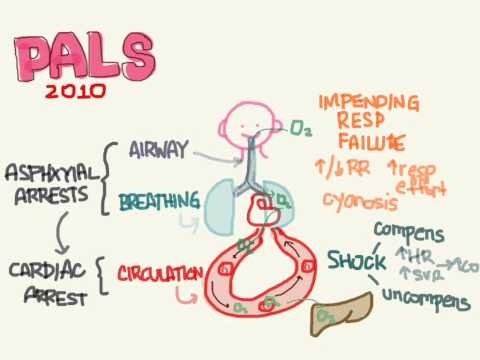 PALS
2010
ASPHXYIAL
ARRESTS
CARDIAC
ARREST
AIRWAY
BREATHING
CIRCULATION
O2
O2
O2
O2
O2
O2
IMPENDING
RESP
FAILUTE
↑/↓RR ↑resp
effort
cyanosis
SHOCK
compens
↑HR → ↑CO
↑SVR
uncompens